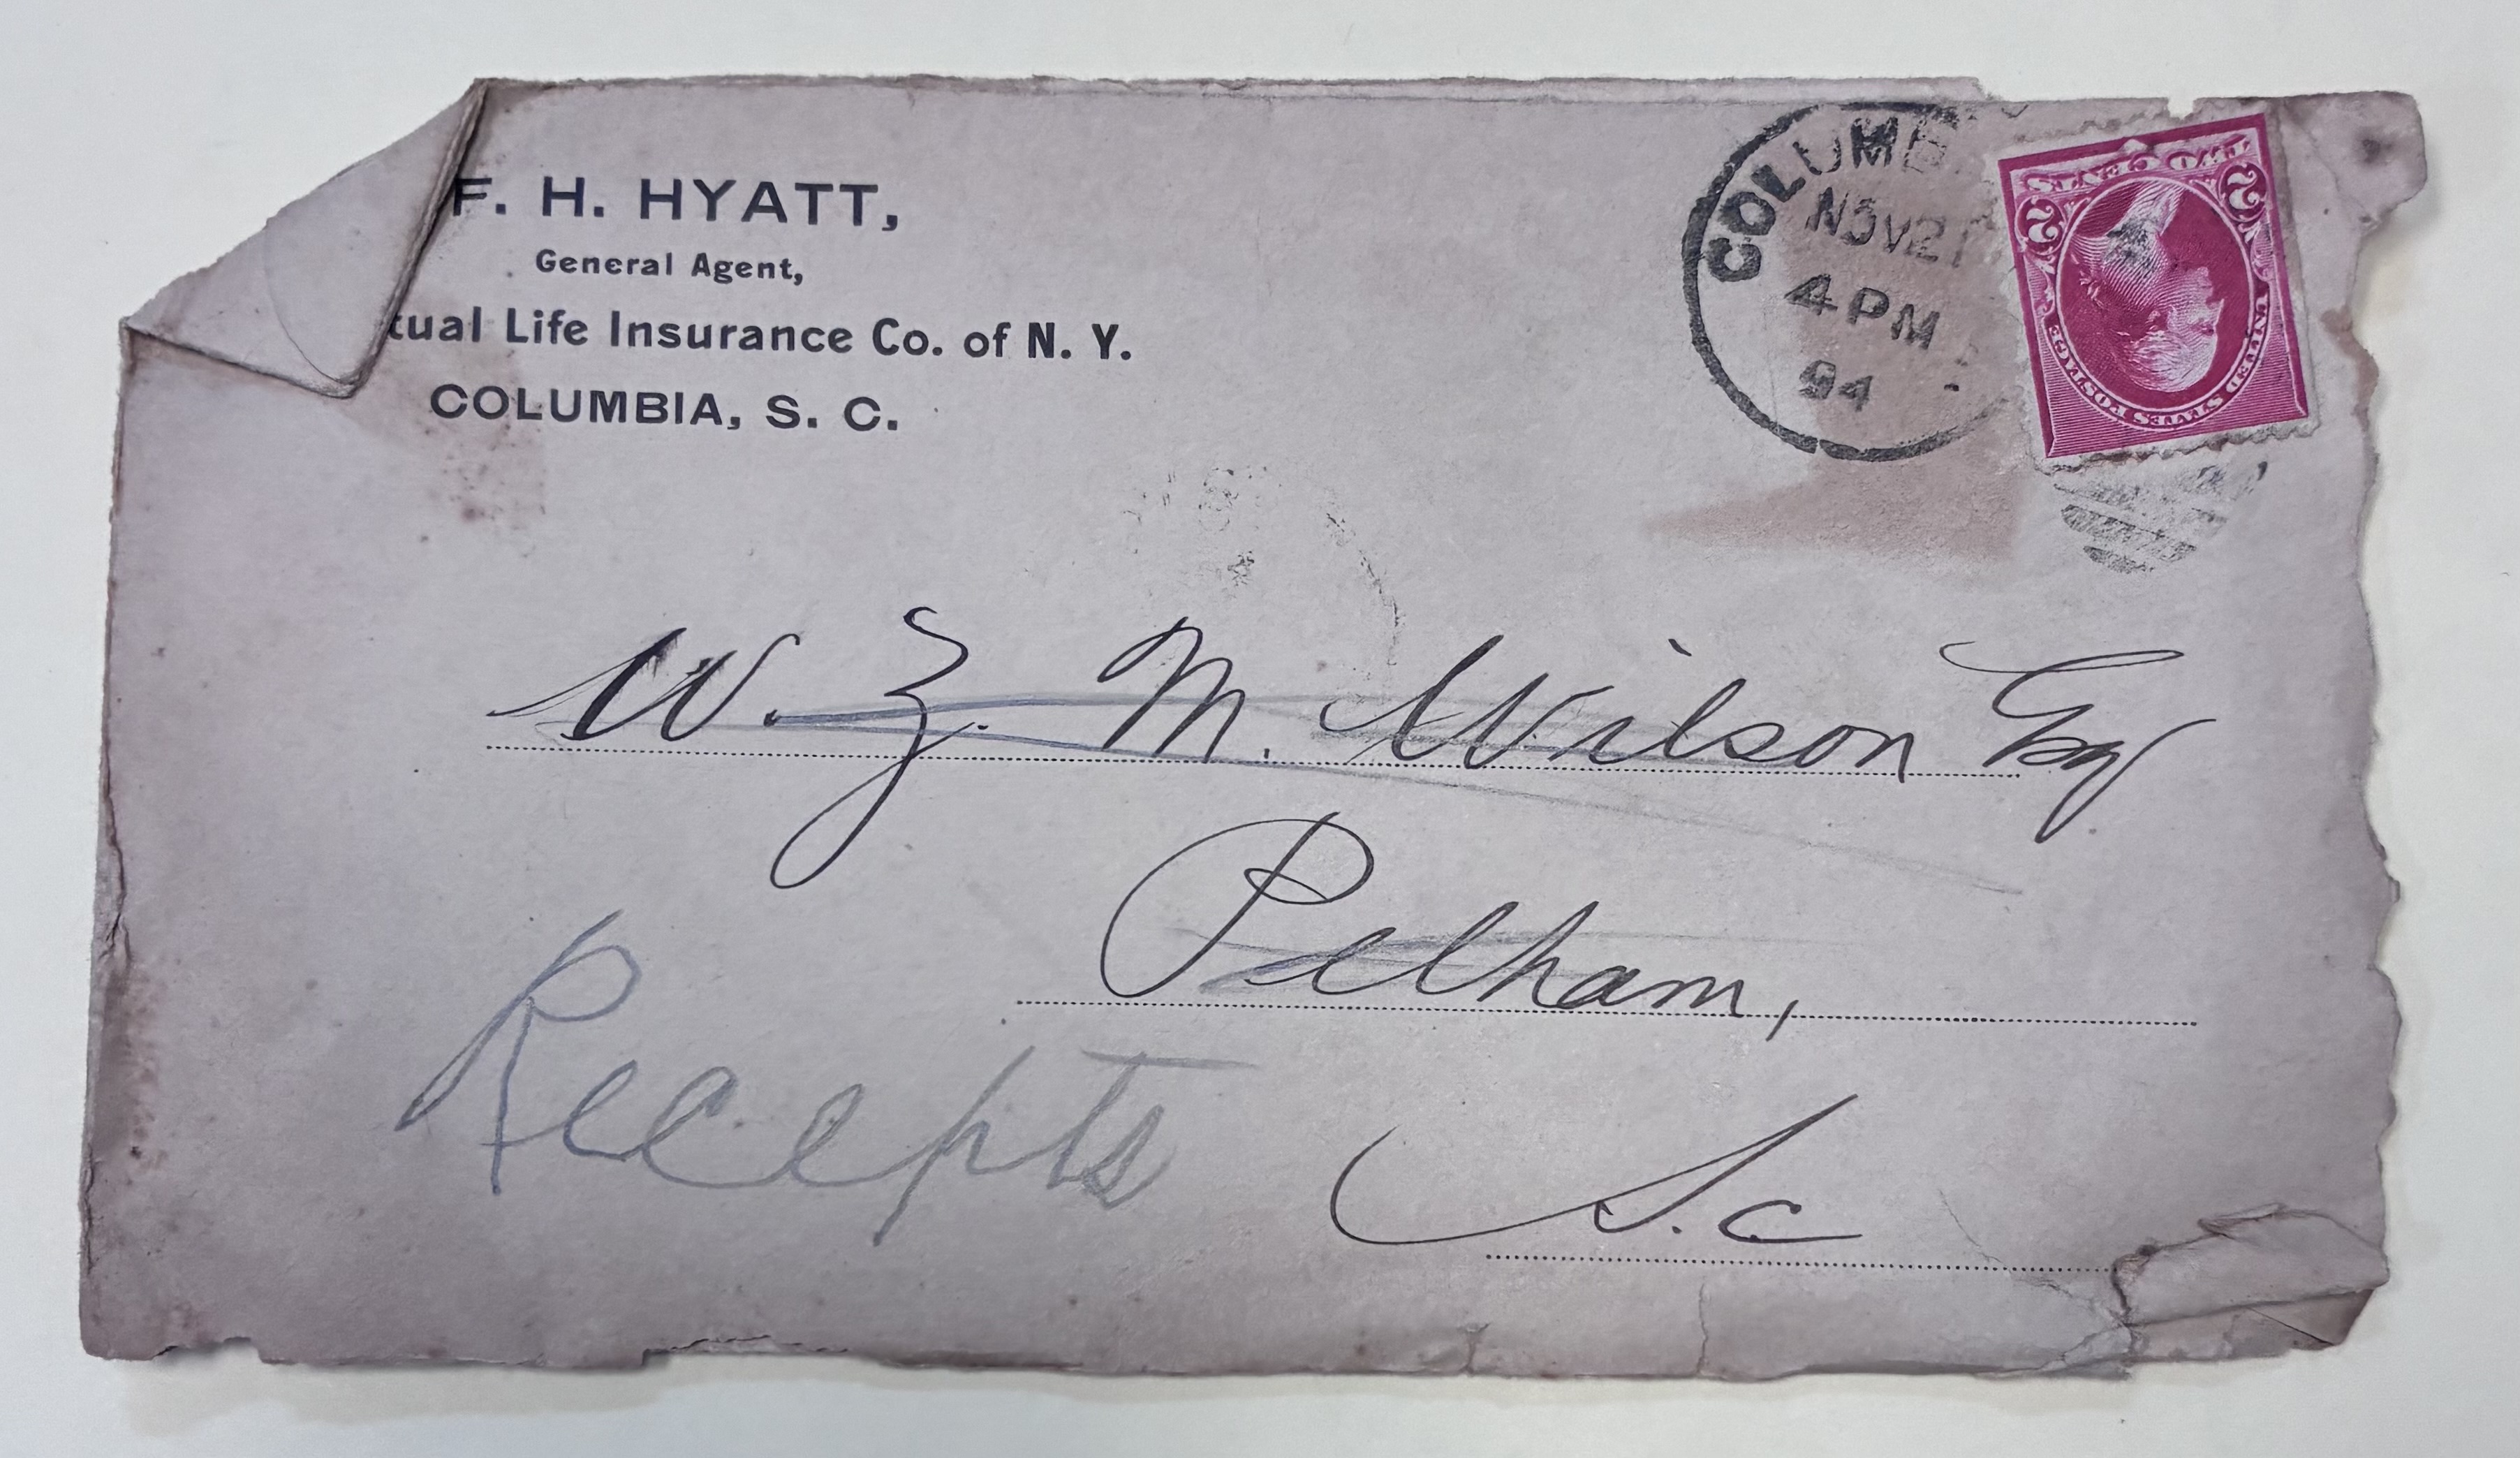 F. H. HYATT,
General Agent,
tual Life Insurance Co. of N. Y.
COLUMBIA, S. C.
COLUMB
NOV 21
4 PM
94
TWO CENTS
2 2
UNITED STATES POSTAGE
W. Z. M. Wilson Esq
Pelham,
S.C
Recepts